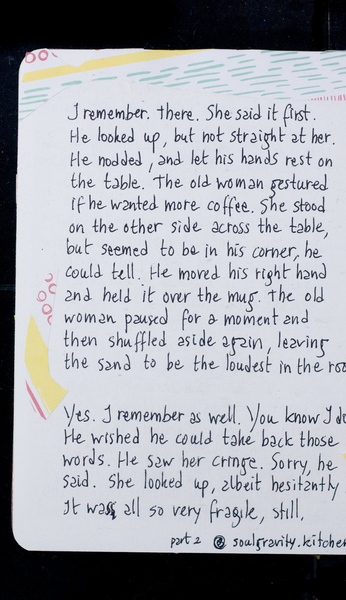 I remember. There. She said it first.
He looked up, but not straight at her.
He nodded, and let his hands rest on
the table. The old woman gestured
if he wanted more coffee. She stood
on the other side across the table,
but seemed to be in his corner, he
could tell. He moved his right hand
and held it over the mug. The old
woman paused for a moment and
then shuffled aside again, leaving
the sand to be the loudest in the roo
Yes. I remember as well. You know I do
He wished he could take back those
words. He saw her cringe. Sorry, he
said. She looked up, albeit hesitantly
It was all so very fragile, still,
part 2 @ soulgravity.kitchen